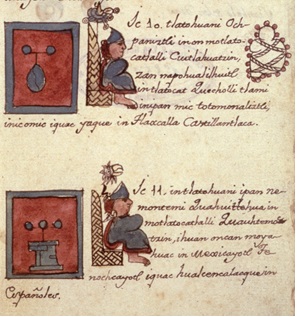 Ic 10. tlatohuani Och
paniztli in on motlato
catlalli Cuitlahuatzin,
zan napohualilhuitl
intlatocat Quecholli tlami
inipan mic totomonaliztli,
inicomic iquac yaque in Tlaxcalla Caxtillantlaca.
Ic 11. in tlatohuani ipan ne
montemi Quahuitlehua in
motlatocatlalli Quauhtemoc
tzin, ihuan oncan moya
huac in Mexicayotl Te
nochcayotl iquac hualcencalacque in
Españoles.